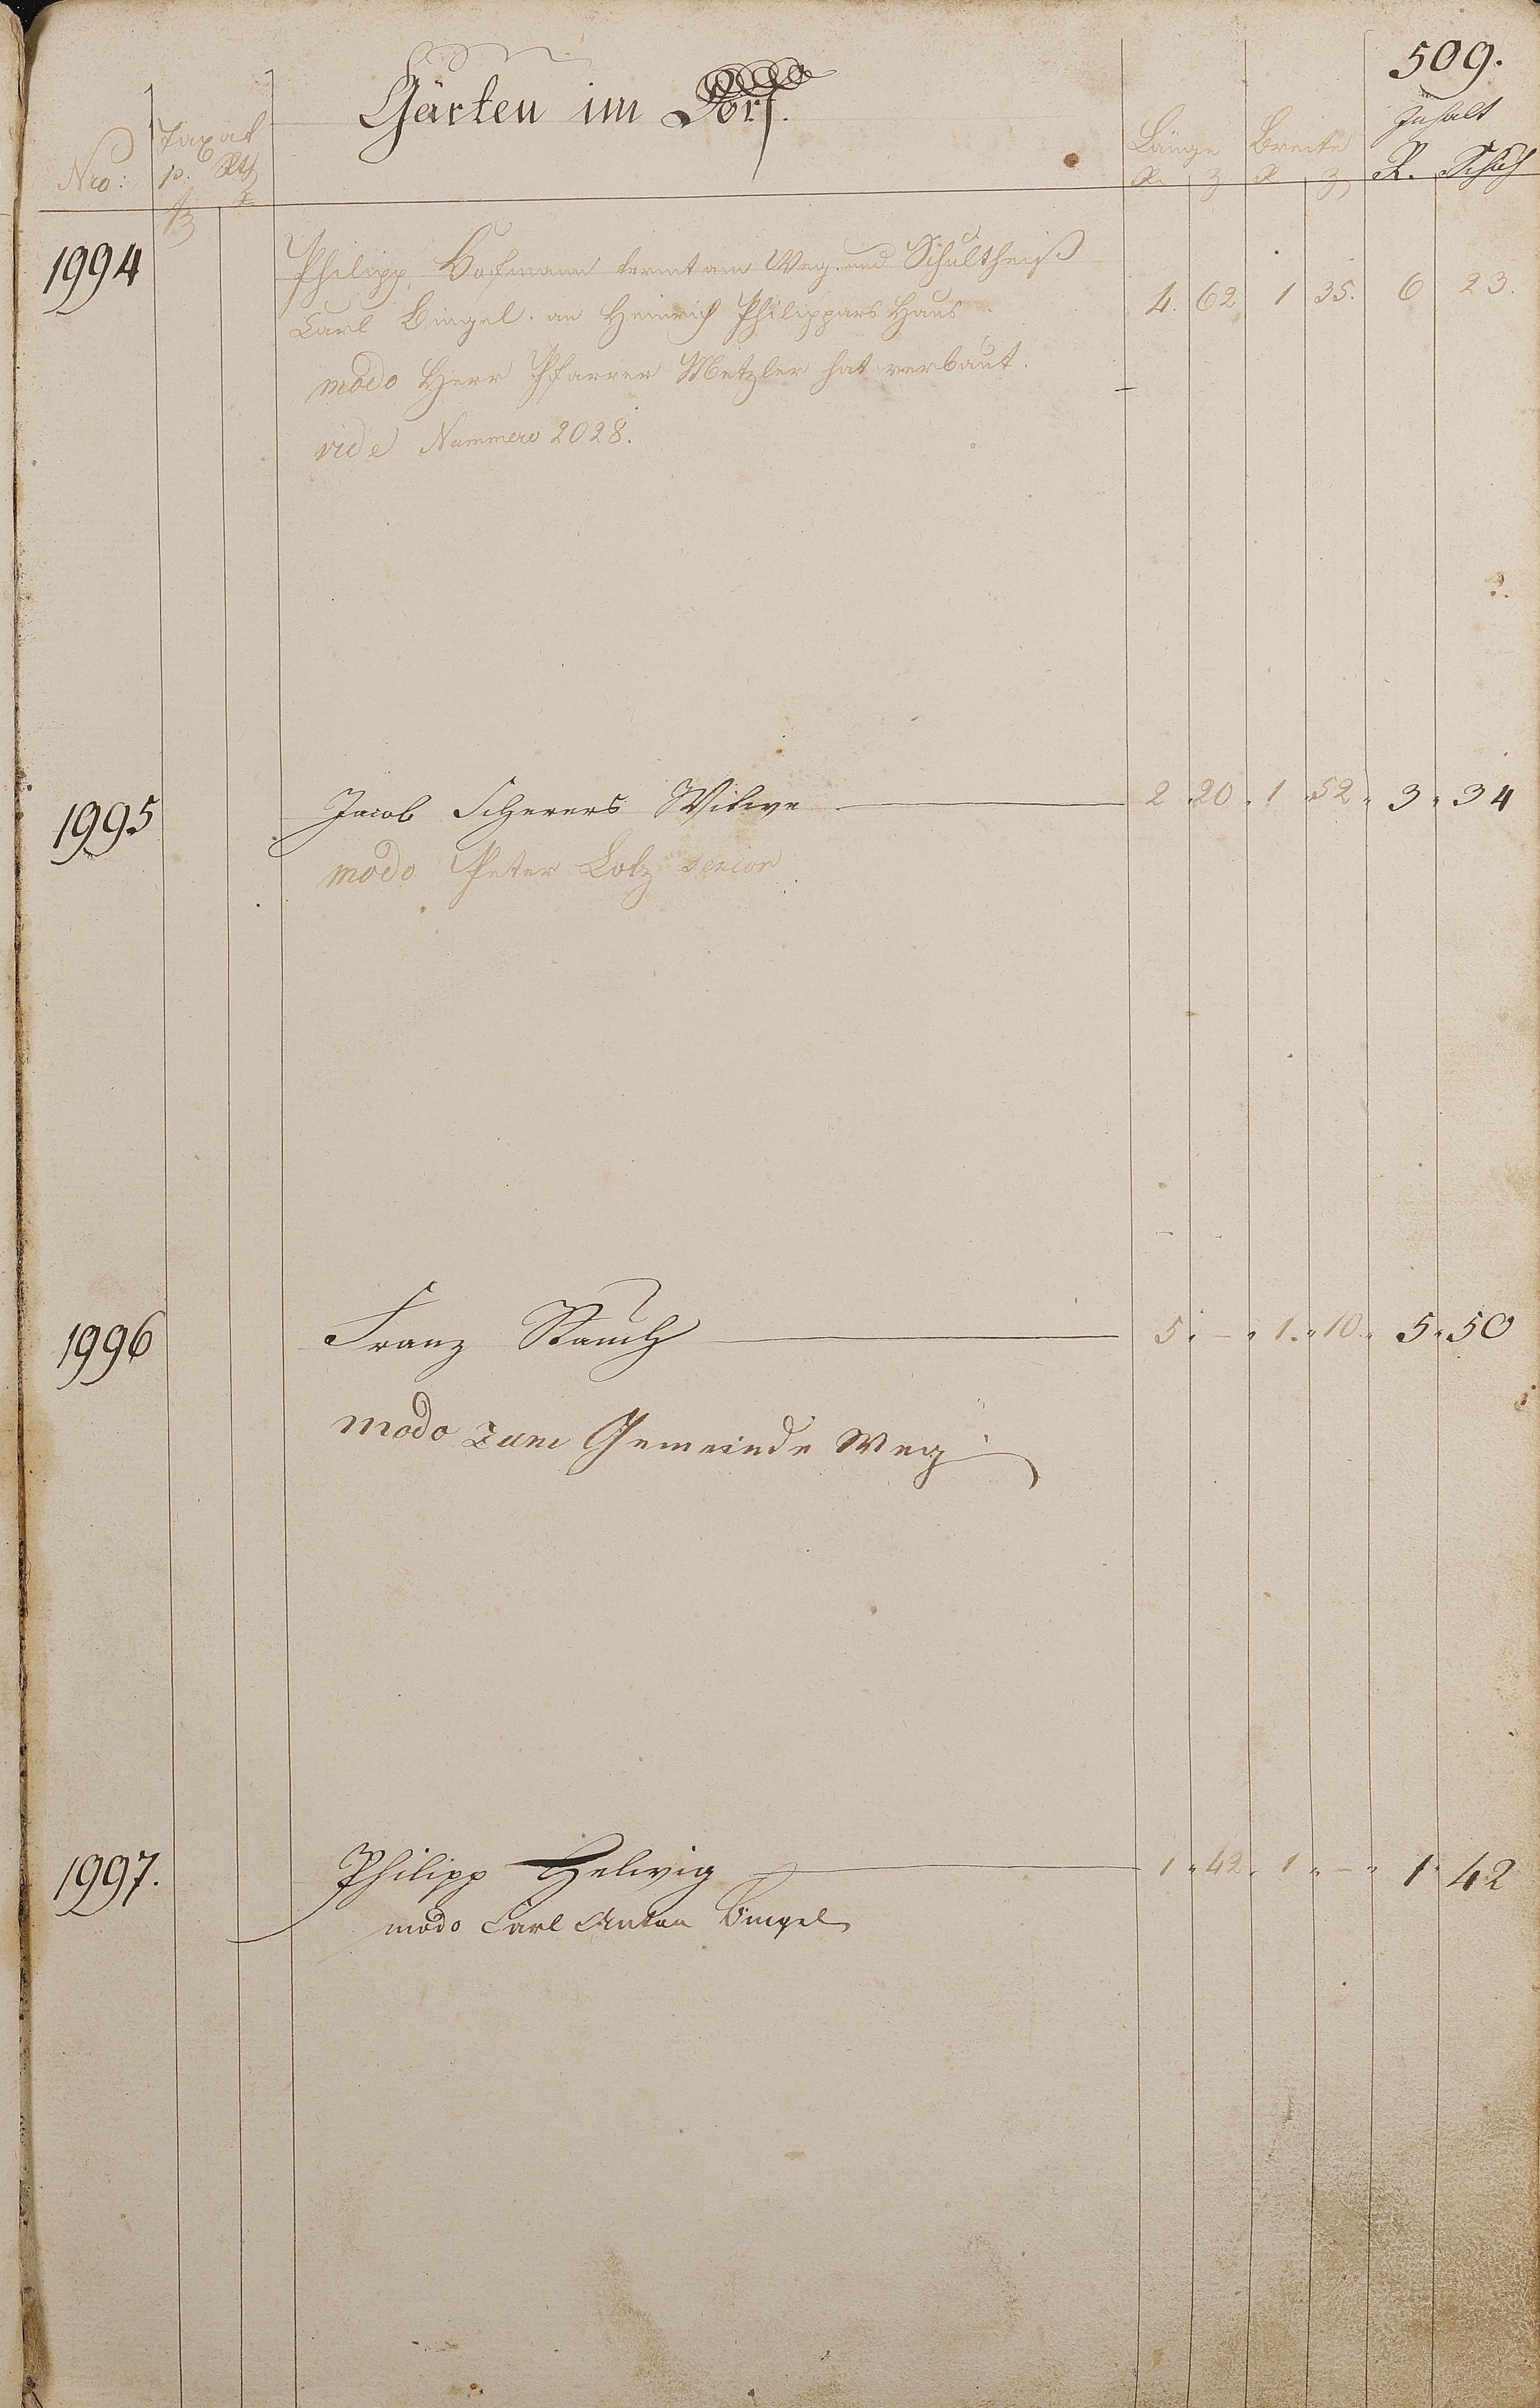 509.
Gärten im Dorf.
Nro: Taxat p. Rth Länge Breite Inhalt
R. Z R Z R. Schuh
1994 Philipp Hofmann am Weg und Schultheiß 4. 62 1 35. 6 23.
Carl Bingel. an Heinrich Philippars Haus
modo Herr Pfarrer Metzler hat verbaut.
vide Nummero 2028.
1995 Jacob Scherers Witwe 2 20 1 52 3 34
modo Peter Lotz senior
1996 Franz Rauch 5 – 1. 10 5 50
modo zum Gemeinde Weg
1997. Philipp Helwig 1 42 1 – 1 42
modo Carl Anton Bingel